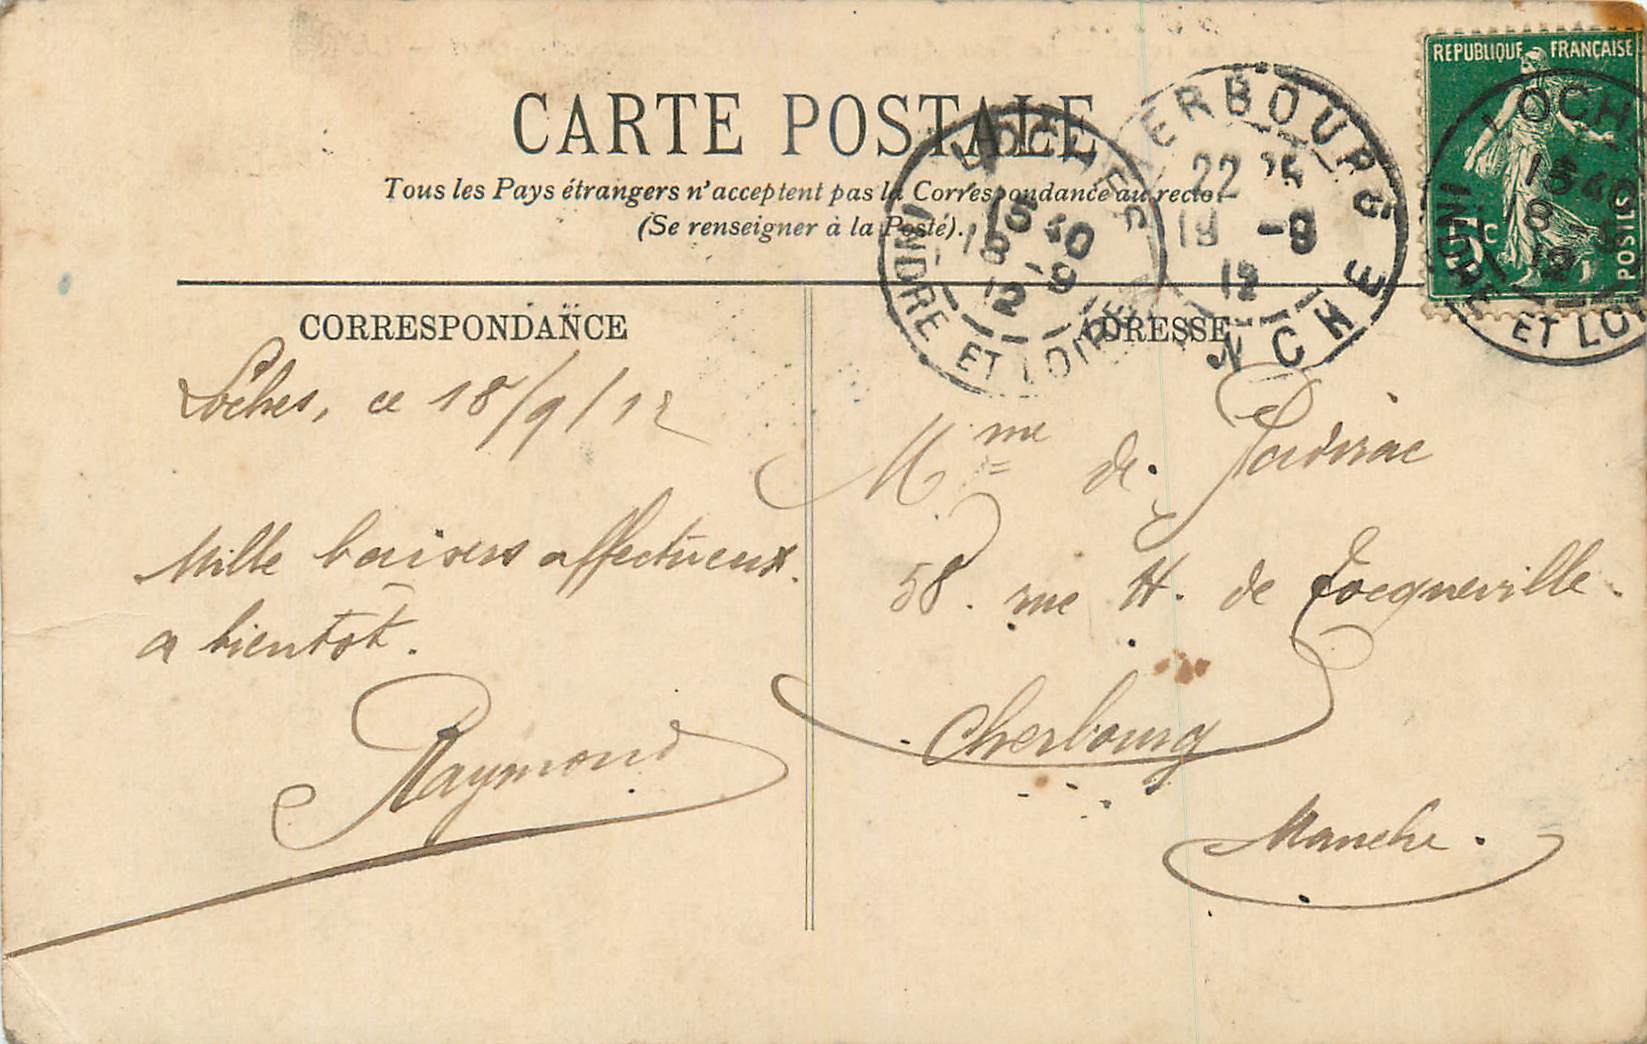 CARTE POSTALE
Tous les Pays étrangers n'acceptent pas la Correspondance au recto.
(Se renseigner à la Poste).
CORRESPONDANCE
Loches, ce 18/9/12
Mille baisers affectueux.
a bientôt.
Raymond
ADRESSE
Mme de
58. rue H. de Tocqueville.
Cherbourg
Manche.
REPUBLIQUE FRANÇAISE
5c
POSTES
LOCHES
15 40
18 -9
12
INDRE ET LOIRE
CHERBOURG
22 25
19 -9
12
MANCHE
LOCH
15 40
18 -9
12
INDRE ET LOI